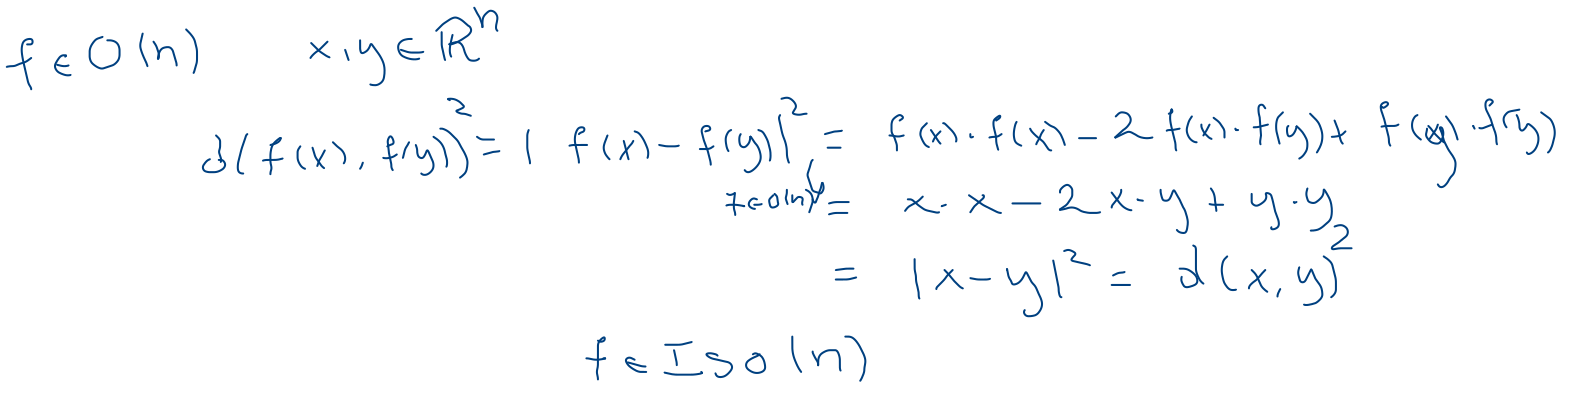 f ∈ O(n) x, y ∈ ℝⁿ
d(f(x), f(y))² = | f(x) - f(y)|² = f(x) · f(x) - 2 f(x) · f(y) + f(y) · f(y)
f ∈ O(n) = x · x - 2 x · y + y · y
= |x - y|² = d(x, y)²
f ∈ Iso(n)